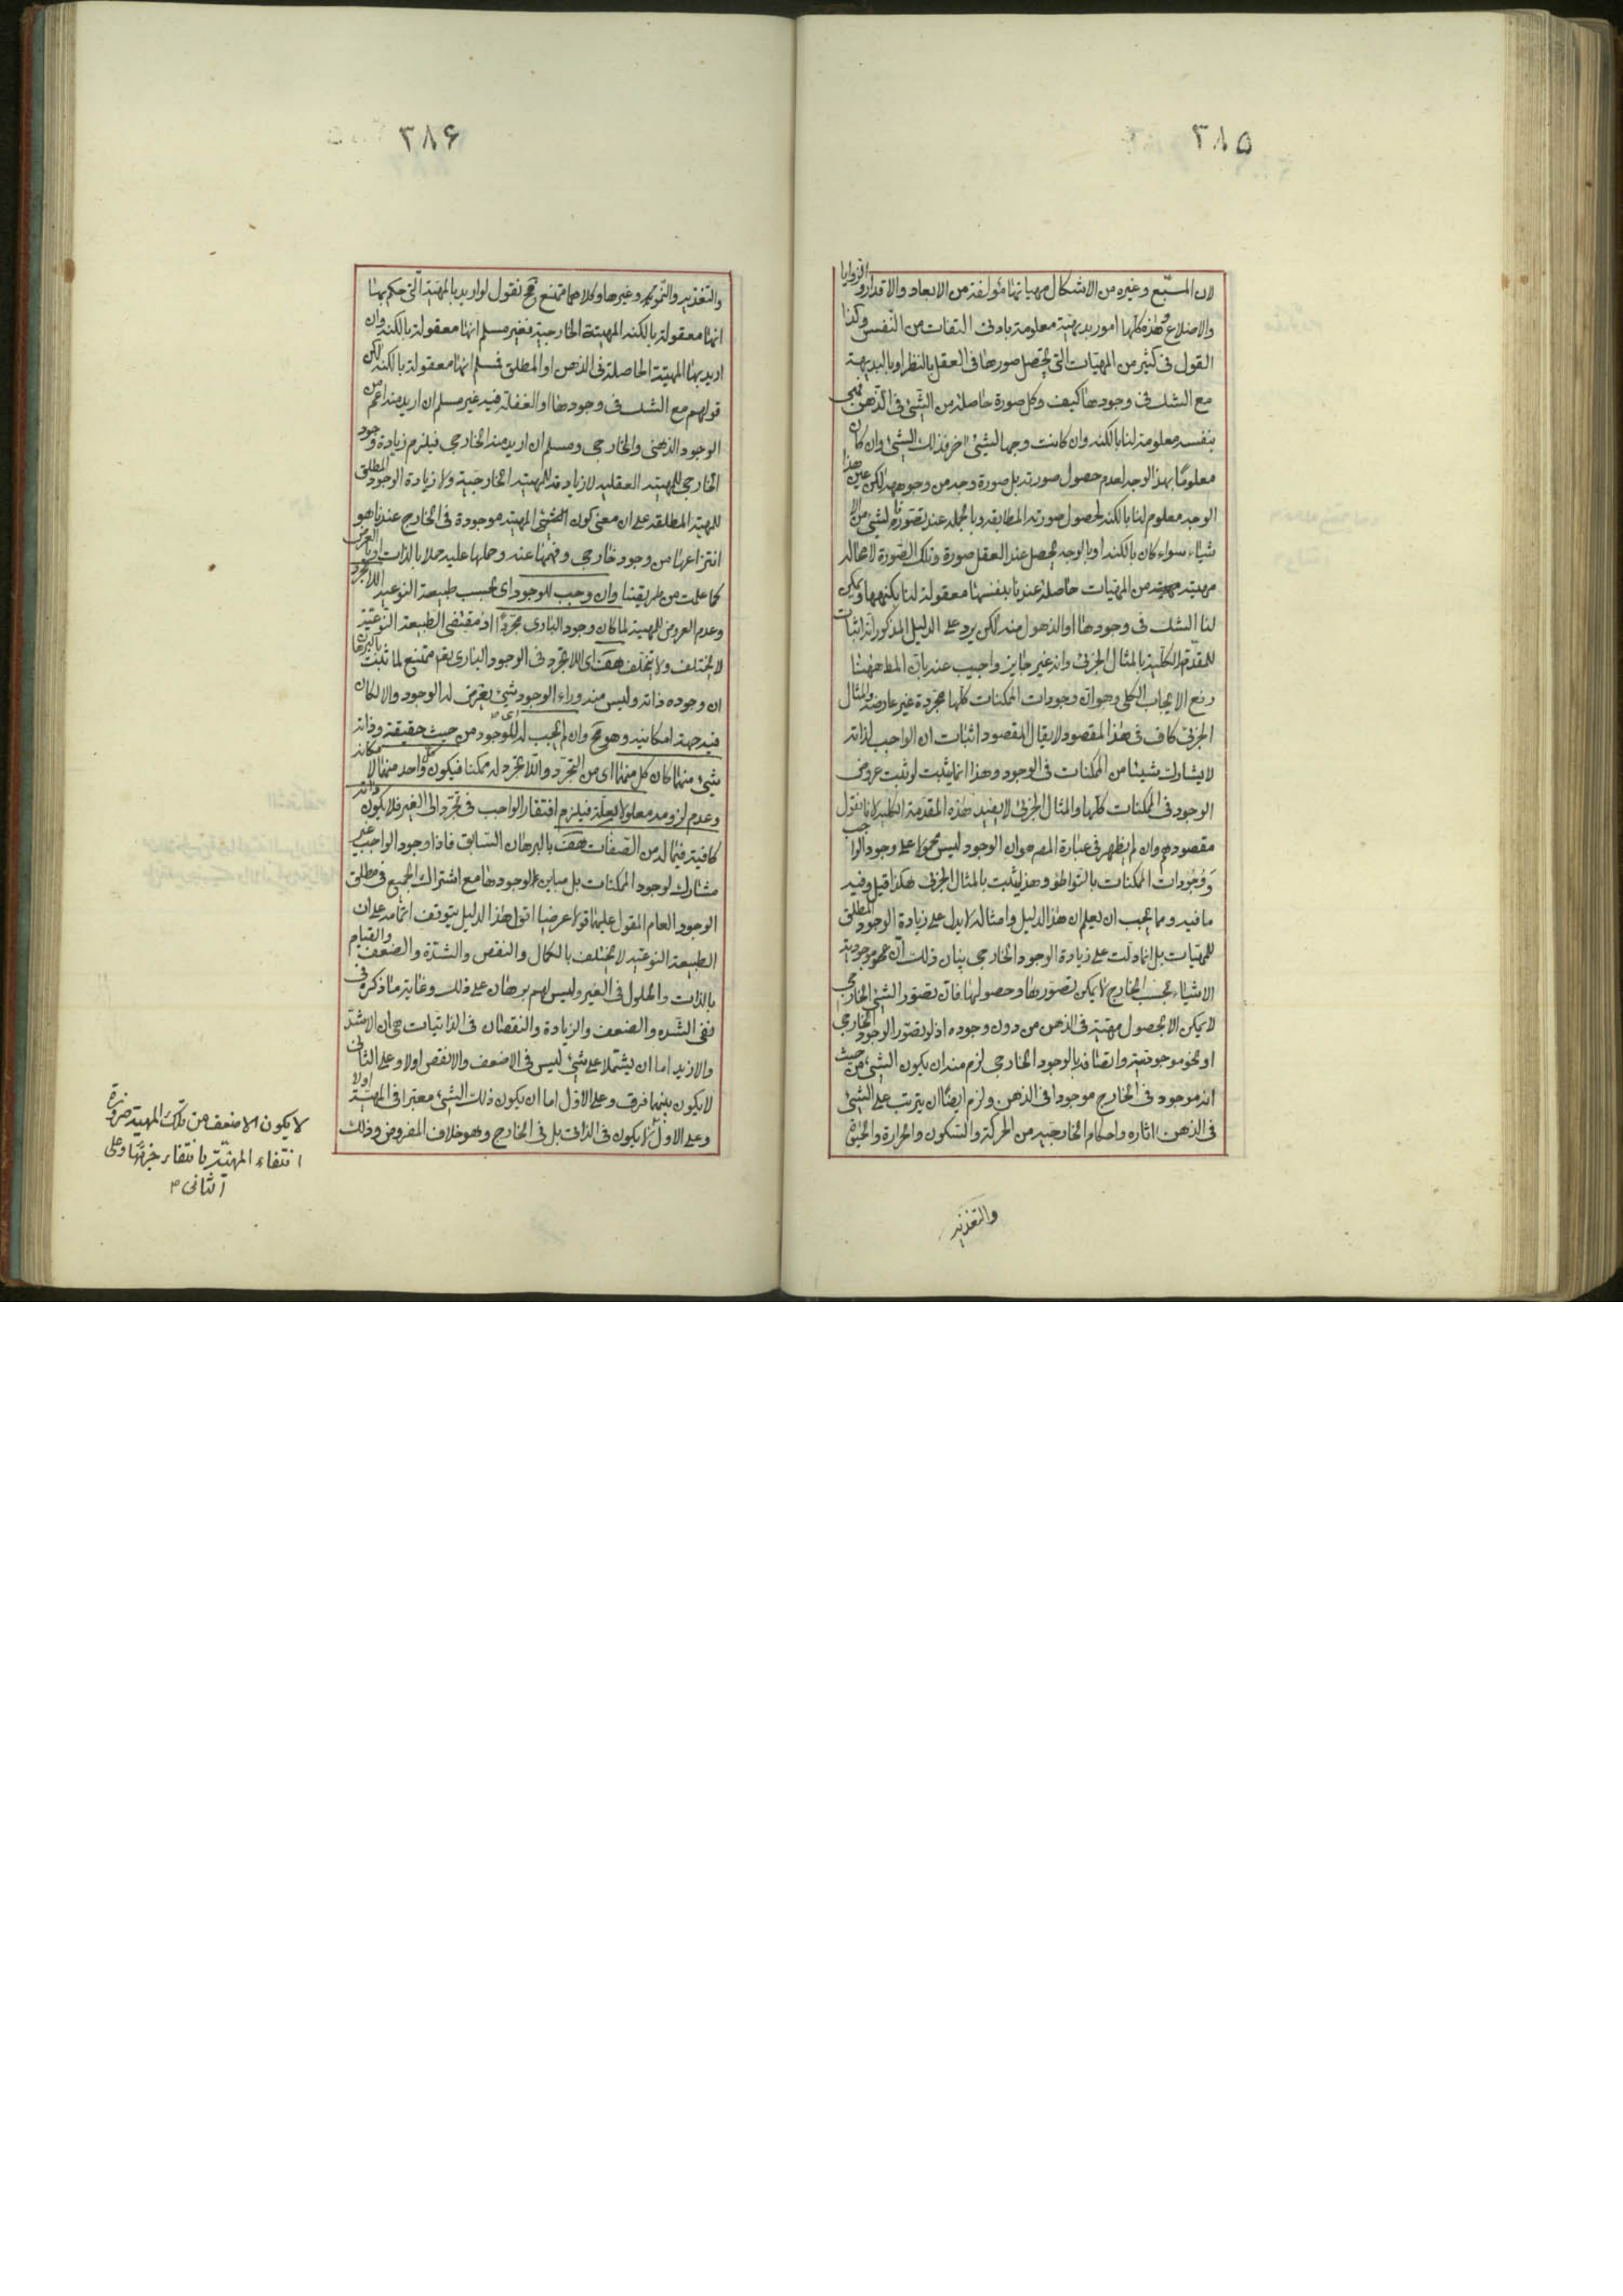 ٣٨٥
لان المسبّع وغيره من الاشكال مهياتها مؤلفة من الابعاد والاقدار والزوايا
والاضلاع وهذه كلها امور بديهية معلومة بادنى التفات من النفس وكذا
القول فى كثير من المهيّات التى يحصل صورها فى العقل بالنظر او بالبديهة
مع الشك فى وجودها كيف وكل صورة حاصلة من الشئ فى الذهن فهى
بنفسه معلومة لنا بالكنه وان كانت وجها لشئ اخر فذلك الشئ وان كان
معلومًا بهذا الوجه لعدم حصول صورته بل صورة وجه من وجوهه لكن عين هذا
الوجه معلوم لنا بالكنه لحصول صورته المطابقه وبالجمله عند تصورنا لشئ من الا
شياء سواء كان بالكنه او بالوجه يحصل عند العقل صورة وتلك الصّورة لا محاله
مهيته من المهيات حاصلة عندنا بنفسها معقولة لنا بكنهها ويمكن
لنا الشك فى وجودها او الذهول منه لكن يرد على الدليل المذكور انه اثبات
للمقدّمة الكليّة بالمثال الجزئى وانه غير جايز واجيب عنه بان المط ههنا
رفع الايجاب الكلى وهو انّ وجودات الممكنات كلها مجردة غير عارضة والمثال
الجزئى كاف فى هذا المقصود لا يقال المقصود اثبات ان الواجب لذاته
لا يشارك شيئا من الممكنات فى الوجود وهذا انما يثبت لو ثبت عروض
الوجود فى الممكنات كلها والمثال الجزئى لا يفيد هذه المقدّمة الكلية لانا نقول
مقصودهم وان لم يظهر فى عبارة المصر هو ان الوجود ليس محمولا على وجود الواجب
ووجودات الممكنات بالتواطؤ وهذا يثبت بالمثال الجزئى هكذا قيل وفيه
ما فيه ومما يجب ان يعلم ان هذا الدليل وامثاله لا يدل على زيادة الوجود المطلق
للمهيّات بل انما دلّت على زيادة الوجود الخارجى بيان ذلك انّ نحو موجودية
الاشياء بحسب الخارج لا يمكن تصورها وحصولها فان تصوّر الشئ الخارجى
لا يمكن الا بحصول مهيّته فى الذهن من دون وجوده اذ لو تصوّر الوجود الخارجى
او نحو موجوديته واتصافه بالوجود الخارجى لزم منه ان يكون الشئ من حيث
انه موجود فى الخارج موجودا فى الذهن ولزم ايضًا ان يترتب على الشئ
فى الذهن اثاره واحكام الخارجيه من الحركة والسّكون والحرارة
والتغذيه
٣٨۶
والتغذيه والنّمو وغيرها وكلاهما ممتنع وح نقول لو اريد بالمهيّة الّتى حكم بها
انها معقولة بالكنه المهيّة الخارجية فغير مسلم انها معقولة بالكنه وان
اريد بها المهيّة الحاصلة فى الذهن او المطلق فمسلم انها معقولة بالكنه لكن
قولهم مع الشك فى وجودها او الغفلة فيه غير مسلم ان اريد منه اعم من
الوجود الذهنى والخارجى ومسلم ان اريد منه الخارجى فيلزم زيادة وجود
الخارجى للمهيته العقليه لا زيادته للمهيته الخارجيّة ولا زيادة الوجود المطلق
للمهيته المطلقه على ان معنى كون المهيته موجودة فى الخارج عندنا هو
انتزاعها من وجود خارجى وفهمها عنه وحملها عليه حملا بالذات او بالعرض
كما علمت من طريقتنا وان وجب للوجود اى بحسب طبيعة النوعيه اللاتجرد
وعدم العروض للمهية لما كان وجود البارى مجردًا اذ مقتضى الطبيعة النّوعيّة
لا يختلف ولا يتخلف هف اى اللاتجرد فى الوجود البارى تعم ممتنع لما ثبت بالبرهان
ان وجوده ذاته وليس منه وراء الوجود شئ يعرض له الوجود والا لكان
فيه جهة امكانيه وهو مح وان لم يجب له اى للوجود من حيث حقيقته وذاته
شئ منهما كان كل منهما اى من التجرّد واللاتجرد له ممكنا فيكون كل واحد منهما لامكانه
وعدم لزومه معلولا بعلّة فيلزم افتقار الواجب فى تجرّده الى الغير فلا يكون ذاته
كافية فيما له من الصّفات هف بالبرهان السّابق فاذا وجود الواجب غير
مشارك لوجود الممكنات بل مباين لوجودها مع اشتراك الجميع فى مطلق
الوجود العام المقول عليها قولا عرضيا اقول هذا الدليل يتوقف اتمامه على ان
الطبيعة النوعيّه لا يختلف بالكمال والنقص والشدّة والضعف والقيام
بالذات والحلول فى الغير وليس لهم برهان على ذلك وغاية ما ذكره فى
نفى الشّده والضعف والزيادة والنقصان فى الذاتيات هى ان الاشدّ
والازيد اما ان يشتملا على شئ ليس فى الاضعف والانقص اولا وعلى الثانى
لا يكون بينهما فرق وعلى الاوّل اما ان يكون ذلك الشئ معتبرا فى المهيّة اولا
وعلى الاول لا يكون فى الذات بل فى الخارج وهو خلاف المفروض وذلك
لا يكون الاضعف من تلك المهية ضرورة
انتفاء المهيّة بانتفاء جزئها وعلى
الثانى